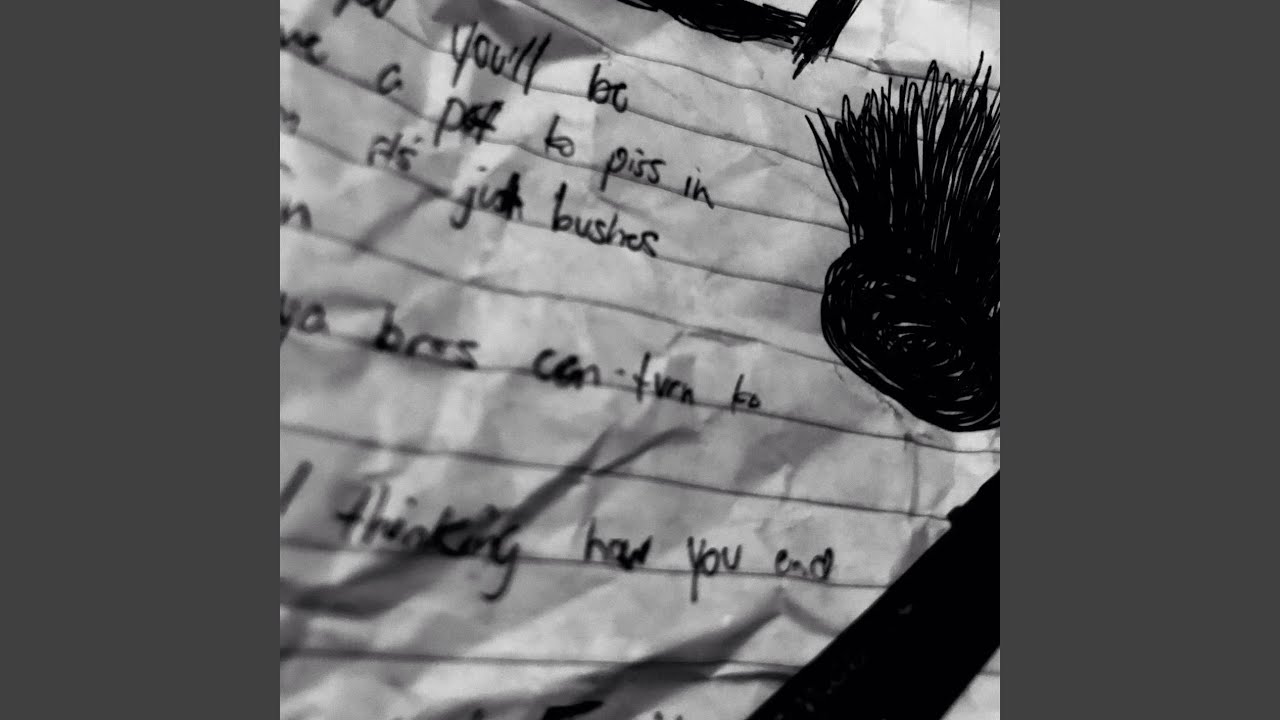 you'll be
a pot to piss in
it's just bushes
ya bros can turn to
thinking how you end